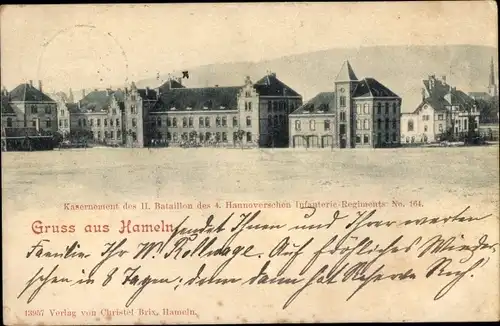 Kasernement des II. Bataillon des 4. Hannoverschen Infanterie-Regiments No. 164.
Gruss aus Hameln, sendet Ihnen u. Ihrer werten
Familie. Ihr W. Auf fröhliches Wieder
sehen in 8 Tagen; denn dann hat Reserve Ruh.
13957 Verlag von Christel Brix, Hameln.